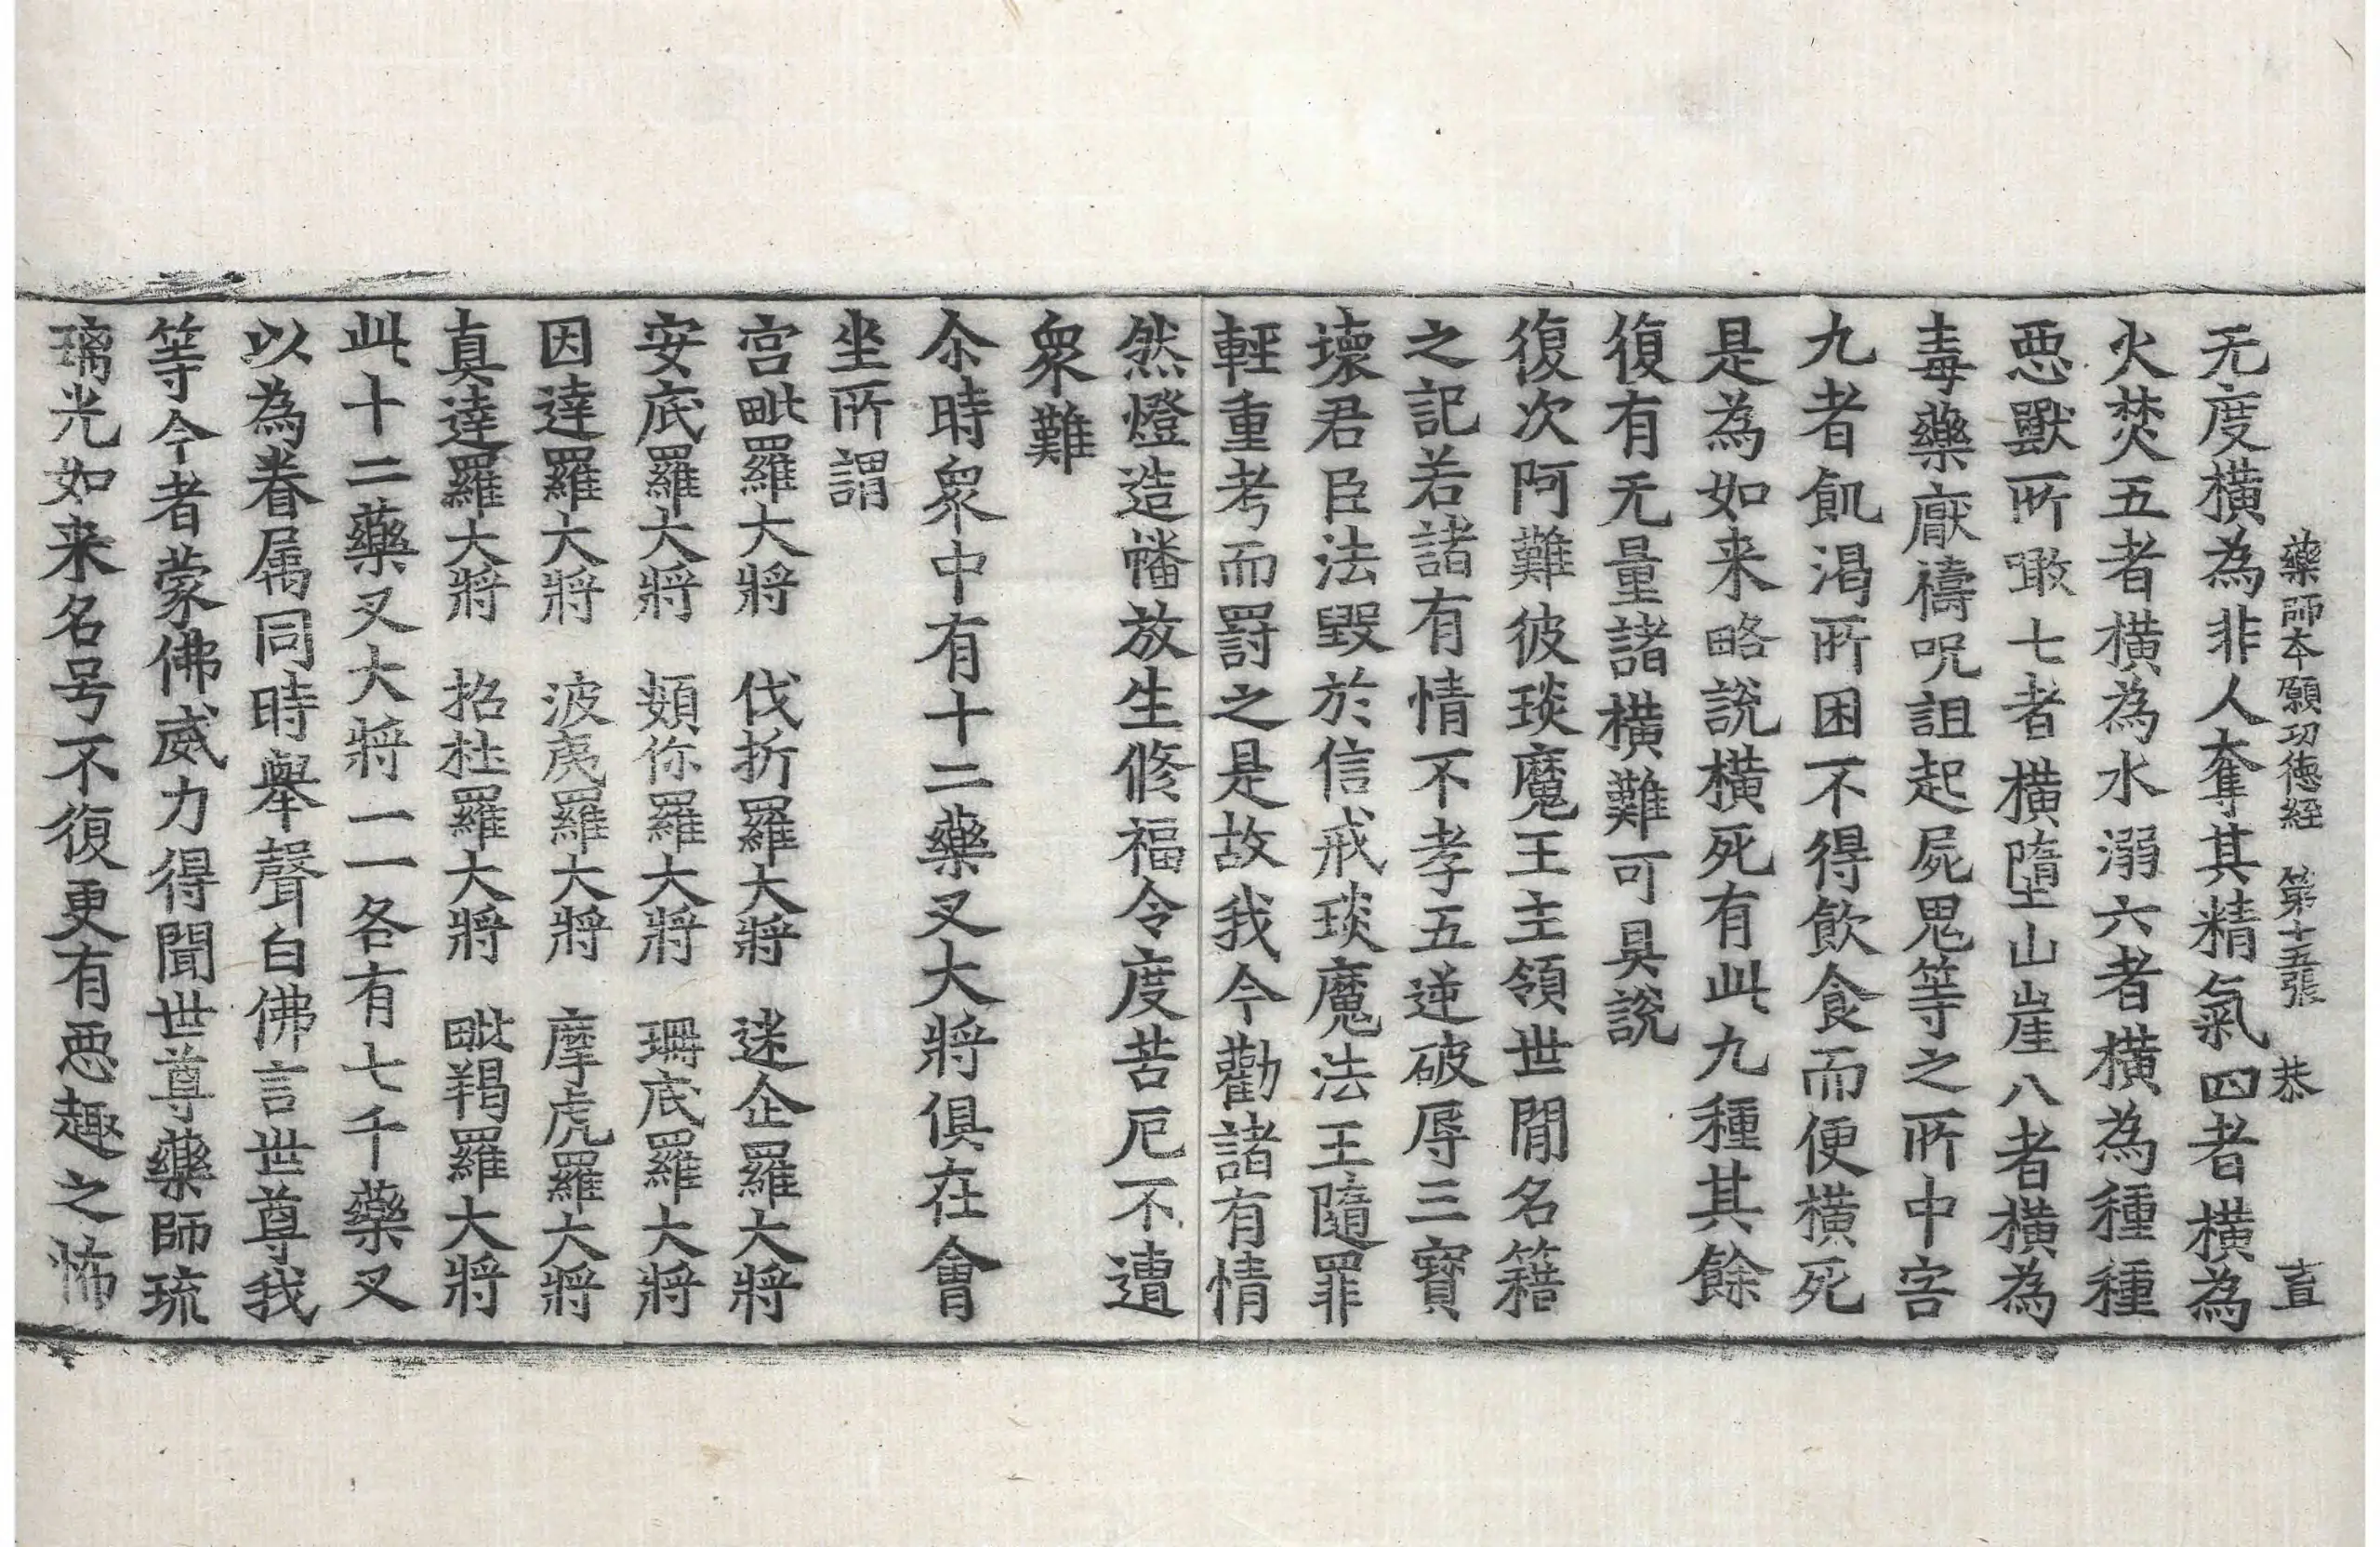 藥師本願功德經 第十五張 恭 畜
无度橫為非人奪其精氣四者橫為
火焚五者橫為水溺六者橫為種種
惡獸所噉七者橫墮山崖八者橫為
毒藥厭禱呪詛起屍鬼等之所中害
九者飢渴所困不得飲食而便橫死
是為如来略說橫死有此九種其餘
復有无量諸橫難可具說
復次阿難彼琰魔王主領世閒名籍
之記若諸有情不孝五逆破辱三寶
壞君臣法毀於信戒琰魔法王隨罪
輕重考而罰之是故我今勸諸有情
然燈造幡放生修福令度苦厄不遭
衆難
尒時衆中有十二藥叉大將俱在會
坐所謂
宮毗羅大將 伐折羅大將 迷企羅大將
安底羅大將 頞你羅大將 珊底羅大將
因達羅大將 波夷羅大將 摩虎羅大將
真達羅大將 招杜羅大將 毗羯羅大將
此十二藥叉大將一一各有七千藥叉
以為眷属同時舉聲白佛言世尊我
等今者蒙佛威力得聞世尊藥師琉
璃光如来名号不復更有惡趣之怖